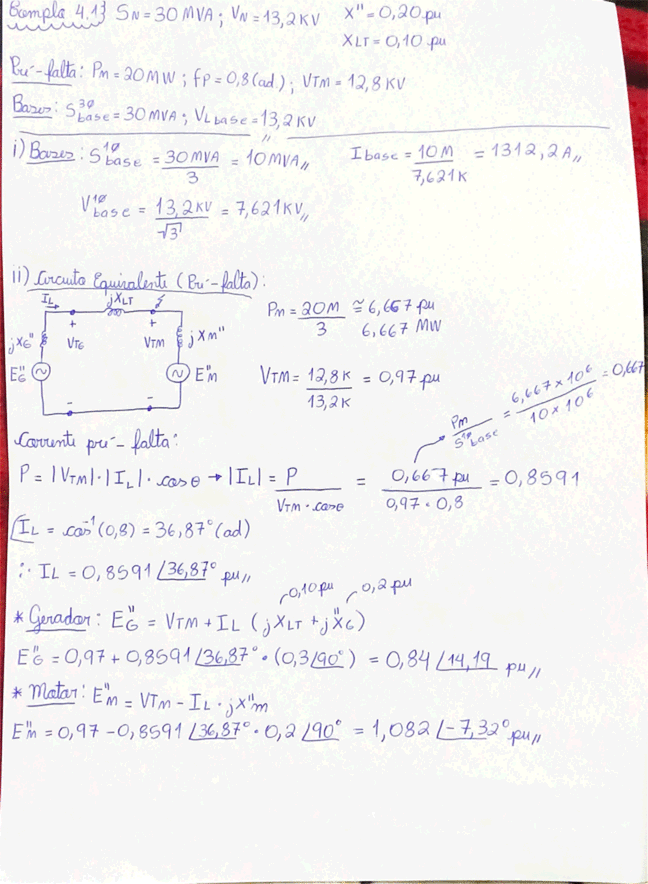 Exemplo 4.1} SN = 30 MVA ; VN = 13,2 KV X" = 0,20 pu
XLT = 0,10 pu
Pré-falta: Pm = 20 MW ; fp = 0,8 (ad.) ; VTM = 12,8 KV
Bases: S3ø base = 30 MVA ; VL base = 13,2 KV
i) Bases: S1ø base = 30 MVA / 3 = 10 MVA// I base = 10 M / 7,621 K = 1312,2 A//
V1ø base = 13,2 KV / √3 = 7,621 KV//
ii) Circuito Equivalente (Pré-falta):
IL jXLT
Pm = 20 M / 3 ≅ 6,667 pu
6,667 MW
jXG" + VTG - + VTM - jXm"
EG" Em"
VTM = 12,8 K / 13,2 K = 0,97 pu
Pm / S1ø base = 6,667 x 10^6 / 10 x 10^6 = 0,667
Corrente pré-falta:
P = |VTM| · |IL| · cos θ → |IL| = P / VTM · cos θ = 0,667 pu / 0,97 · 0,8 = 0,8591
∠IL = cos^-1 (0,8) = 36,87° (ad)
∴ IL = 0,8591 ∠36,87° pu//
0,10 pu 0,2 pu
* Gerador: EG" = VTM + IL (jXLT + jXG")
EG" = 0,97 + 0,8591 ∠36,87° · (0,3 ∠90°) = 0,84 ∠14,19 pu//
* Motor: Em" = VTM - IL · jX"m
Em" = 0,97 - 0,8591 ∠36,87° · 0,2 ∠90° = 1,082 ∠-7,32° pu//